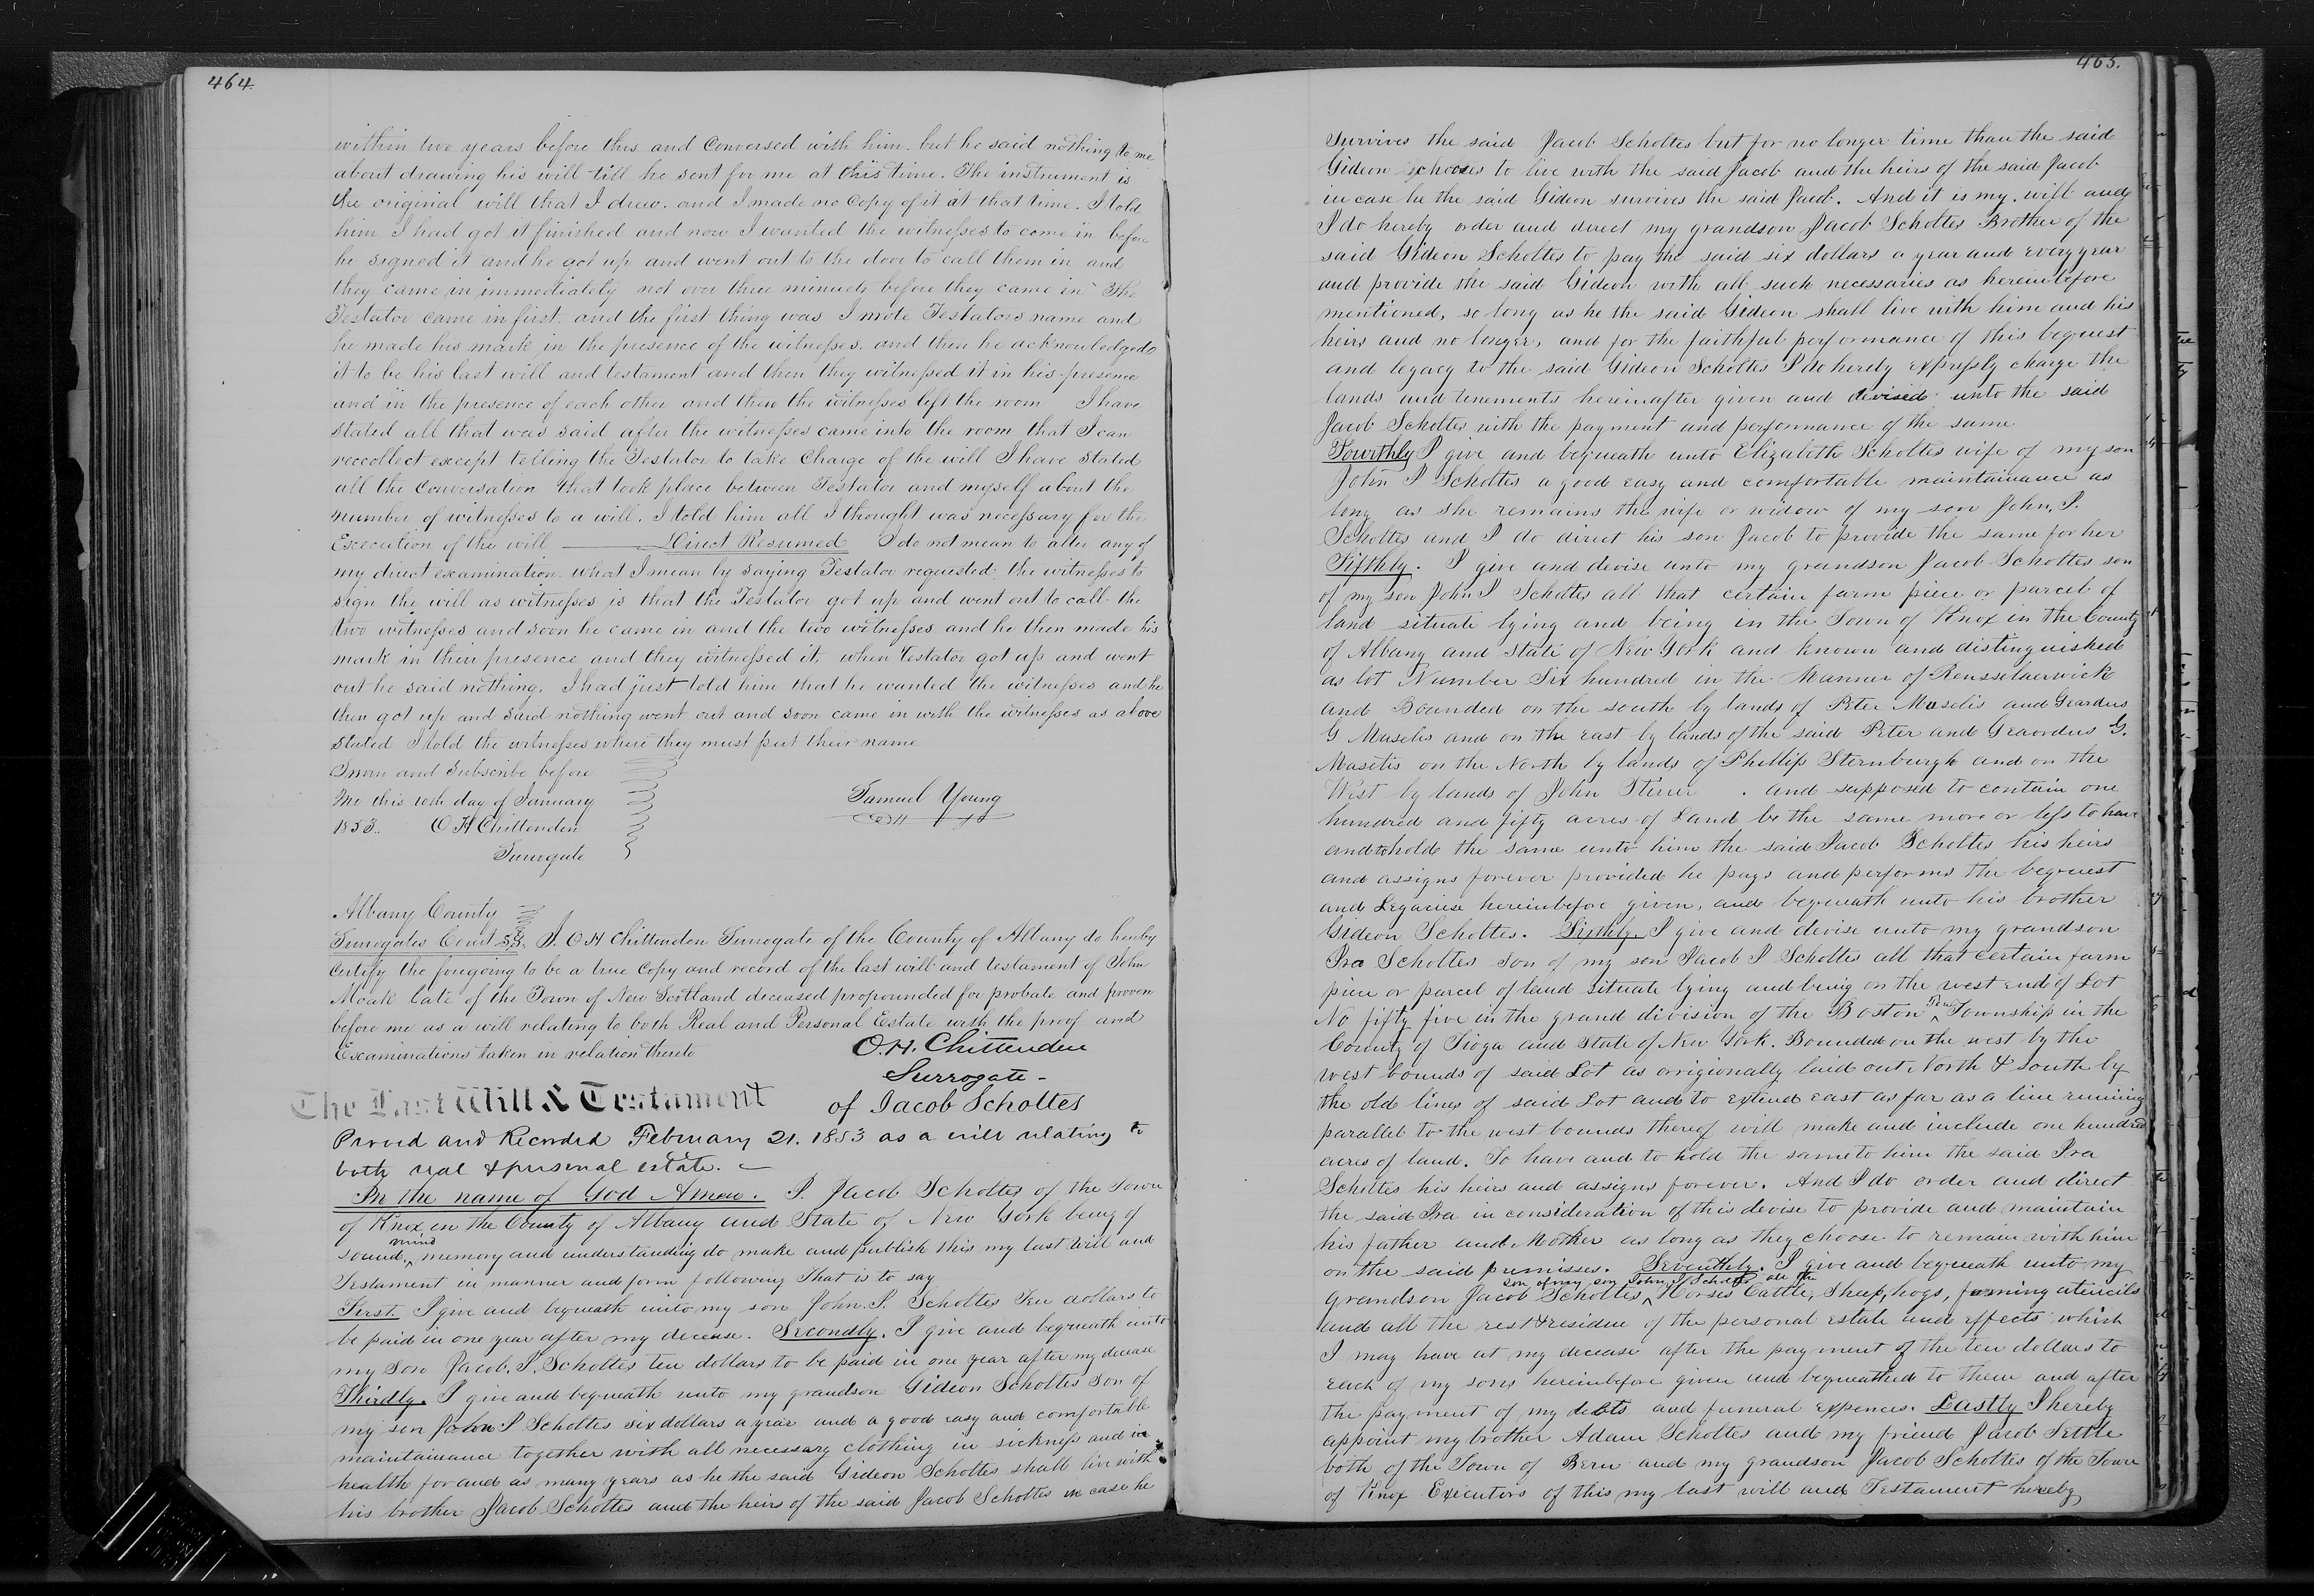 464.
within two years before this and Conversed with him. but he said nothing to me
about drawing his will till he sent for me at this time. The instrument is
the original will that I drew. and I made no Copy of it at that time. I told
him I had got it finished and now I wanted the witnesses to come in before
he signed it and he got up and went out to the door to call them in and
they came in immediately not over three minuets before they came in The
Testator came in first. and the first thing was I wrote Testators name and
he made his mark in the presence of the witnesses. and then he acknowledged
it to be his last will and testament and then they witnessed it in his presence
and in the presence of each other and then the witnesses left the room I have
stated all that was said after the witnesses came into the room that I can
reccollect except telling the Testator to take Charge of the will I have Stated
all the Conversation that took place between Testator and myself about the
number of witnesses to a will. I told him all I thought was necessary for the
Excecution of the will Direct Resumed I do not mean to alter any of
my direct examination. what I mean by saying Testator requested the witnesses to
sign the will as witnesses is that the Testator got up and went out to call the
two witnesses and soon he came in and the two witnesses and he then made his
mark in their presence and they witnessed it, when Testator got up and went
out he said nothing. I had just told him that he wanted the witnesses and he
then got up and said nothing went out and soon came in with the witnesses as above
stated I told the witnesses where they must put their name
Sworn and Subscribe before
Me this 10th day of January
Samuel Young
1853. O H Chittenden
Surrogate
Albany County
Surrogates Court SS. I. O H Chittenden Surrogate of the County of Albany do hereby
Certify the foregoing to be a true Copy and record of the last will and testament of John
Moak late of the Town of New Scotland deceased propounded for probate and proven
before me as a will relating to both Real and Personal Estate with the proof and
Examinations taken in relation thereto O. H. Chittenden
Surrogate -
The Last Will & Testament of Jacob Scholtes
Proved and Recorded February 21. 1853 as a will relating to
both real & personal estate.
In the name of God Amen. I. Jacob Scholtes of the Town
of Knox in the County of Albany and State of New York being of
sound, mind memory and understanding do make and publish this my last Will and
Testament in manner and form following That is to say
First I give and bequeath unto my son John. I. Scholtes Ten dollars to
be paid in one year after my decease. Secondly. I give and bequeath unto
my Son Jacob. I. Scholtes ten dollars to be paid in one year after my decease
Thirdly. I give and bequeath unto my grandson Gideon Scholtes Son of
my son John I Scholtes six dollars a year and a good easy and comfortable
maintainance together with all necessary clothing in sickness and in
health for and as many years as he the said Gideon Scholtes shall live with
his brother Jacob Scholtes and the heirs of the said Jacob Scholtes in case he
465.
Survives the said Jacob Scholtes but for no longer time than the said
Gideon chooses to live with the said Jacob and the heirs of the said Jacob
in case he the said Gideon survives the said Jacob. And it is my will and
I do hereby order and direct my grandson Jacob Scholtes Brother of the
said Gideon Scholtes to pay the said six dollars a year and every year
and provide the said Gideon with all such necessaries as hereinbefore
mentioned, so long as he the said Gideon shall live with him and his
heirs and no longer, and for the faithful performance of this bequest
and legacy to the said Gideon Scholtes I do hereby expressly charge the
lands and tenements hereinafter given and devised unto the said
Jacob Scholtes with the payment and performance of the same
Fourthly I give and bequeath unto Elizabeth Scholtes wife of my son
John I Scholtes a good easy and comfortable maintainance as
long as she remains the wife or widow of my son John. I.
Scholtes and I do direct his son Jacob to provide the same for her
Fifthly. I give and devise unto my grandson Jacob Scholtes son
of my son John I Scholtes all that certain farm piece or parcel of
land situate lying and being in the Town of Knox in the County
of Albany and State of New York and known and distinguished
as lot Number Six hundred in the Mannor of Rensselaerwick
and Bounded on the south by lands of Peter Maselis and Geardus
G Maselis and on the east by lands of the said Peter and Geaordus G.
Maselis on the North by lands of Phillip Sternburgh and on the
West by lands of John . and supposed to contain one
hundred and fifty acres of Land be the same more or less to have
and to hold the same unto him the said Jacob Scholtes his heirs
and assigns forever provided he pays and performs the bequest
and Legaciese hereinbefore given, and bequeath unto his brother
Gideon Scholtes. Sixthly. I give and devise unto my grandson
Ira Scholtes son of my son Jacob I Scholtes all that certain farm
piece or parcel of land situate lying and being on the west end of Lot
No fifty five in the grand division of the Boston Ten Township in the
County of Tioga and State of New York. Bounded on the west by the
west bounds of said Lot as origionally laid out North & South by
the old lines of said Lot and to extend east as far as a line runing
parallel to the west bounds thereof will make and include one hundred
acres of land. To have and to hold the same to him the said Ira
Scholtes his heirs and assigns forever. And I do order and direct
the said Ira in consideration of this devise to provide and maintain
his father and Mother as long as they choose to remain with him
on the said premisses. Seventhly. I give and bequeath unto my
son of my son John I Scholtes all the
grandson Jacob Scholtes Horses Cattle, Sheep, hogs, farming utencils
and all the rest & residue of the personal estate and effects which
I may have at my decease after the payment of the ten dollars to
each of my sons hereinbefore given and bequeathed to them and after
the payment of my debts and funeral expences. Lastly I hereby
appoint my brother Adam Scholtes and my friend Jacob Settle
both of the Town of Bern and my grandson Jacob Scholtes of the Town
of Knox Executors of this my last will and Testament hereby